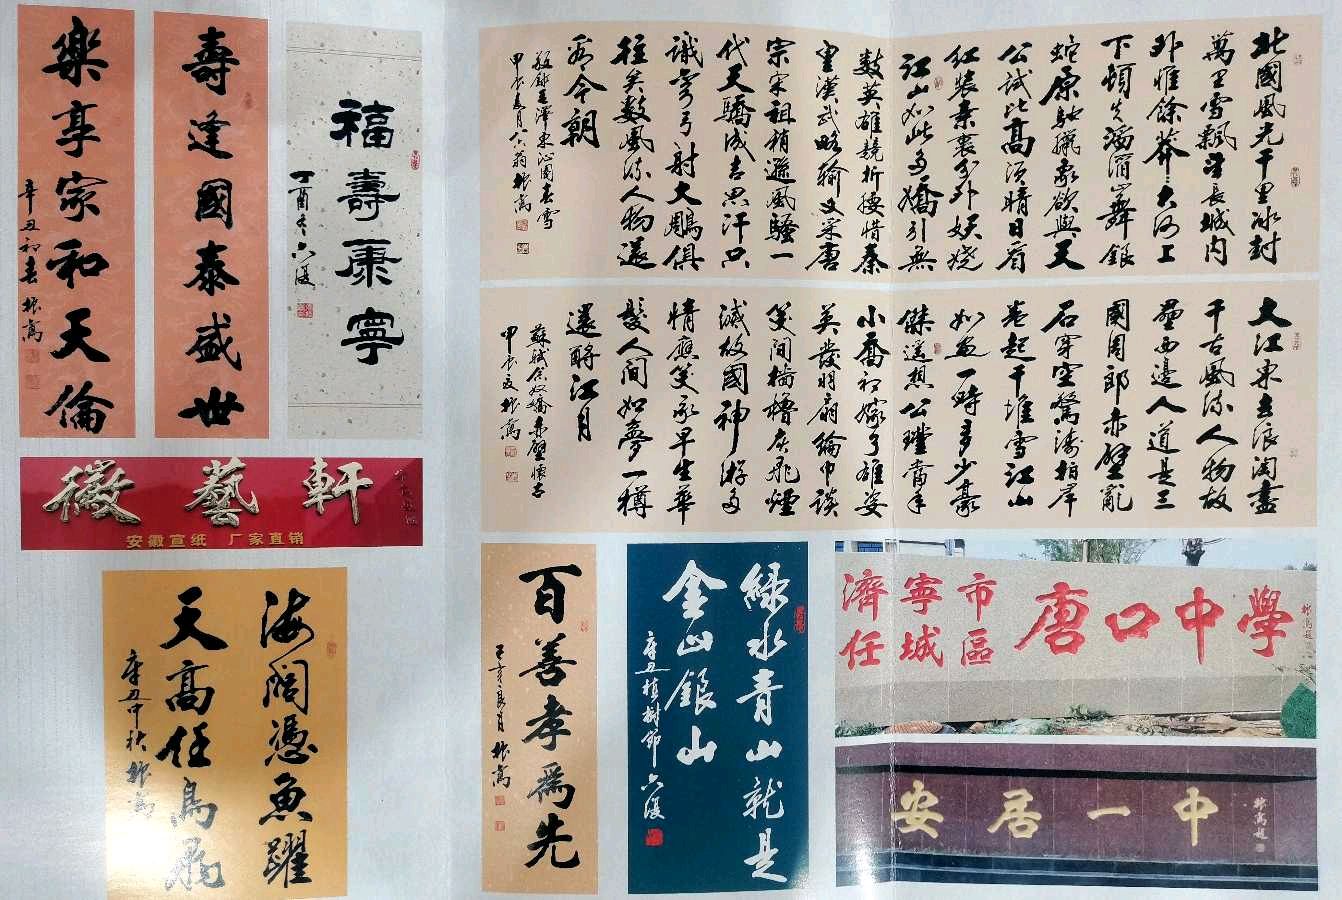 壽逢國泰盛世
樂享家和天倫
辛丑初春 振嵩
福壽康寧
丁酉冬
北國風光千里冰封
萬里雪飄望長城內
外惟餘莽莽大河上
下頓失滔滔山舞銀
蛇原馳臘象欲與天
公試比高須晴日看
紅裝素裹分外妖嬈
江山如此多嬌引無
數英雄競折腰惜秦
皇漢武略輸文采唐
宗宋祖稍遜風騷一
代天驕成吉思汗只
識彎弓射大鵰俱
往矣數風流人物還
看今朝
敬錄毛澤東沁園春雪
甲辰春月六六翁振嵩
大江東去浪淘盡
千古風流人物故
壘西邊人道是三
國周郎赤壁亂
石穿空驚濤拍岸
卷起千堆雪江山
如畫一時多少豪
傑遙想公瑾當年
小喬初嫁了雄姿
英發羽扇綸巾談
笑間檣櫓灰飛煙
滅故國神游多
情應笑我早生華
髮人間如夢一樽
還酹江月
蘇軾念奴嬌赤壁懷古
甲辰夏振嵩
徽藝軒
安徽宣纸 厂家直销
海闊憑魚躍
天高任鳥飛
辛丑中秋振嵩
百善孝爲先
己亥良月振嵩
綠水青山就是
金山銀山
辛丑植樹節
濟寧市
任城區
唐口中學
振嵩題
安居一中
振嵩題